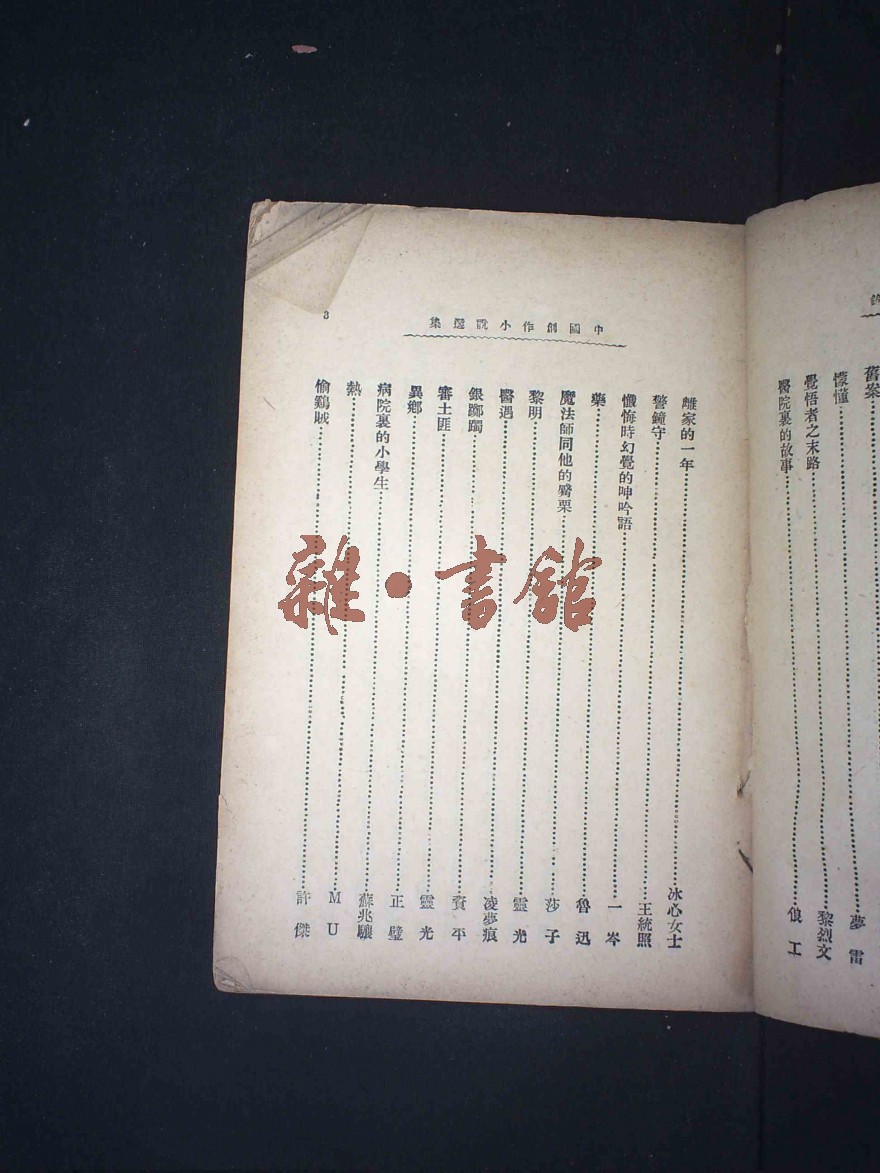 舊案
懞懂……夢雷
覺悟者之末路……黎烈文
醫院裏的故事……俍工
中國創作小說選集
3
離家的一年……冰心女士
警鐘守……王統照
懺悔時幻覺的呻吟語……一岑
藥……魯迅
魔法師同他的觱栗……莎子
黎明……靈光
醫遇……凌夢痕
銀躑躅……資平
審土匪……靈光
異鄉……正璧
病院裏的小學生……蘇兆驤
熱……MU
偷鷄賊……許傑
雜·書館